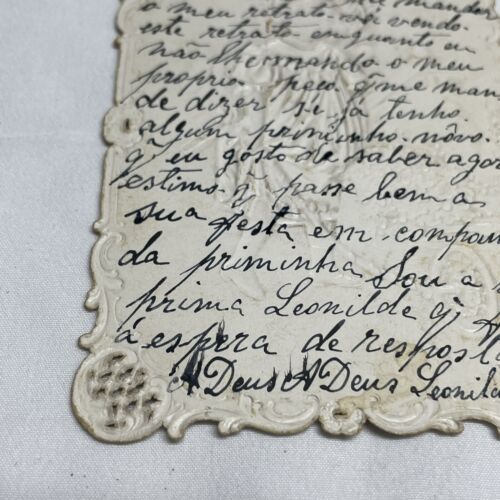 mandar
o meu retrato vá vendo
este retrato emquanto eu
não lhe mando o meu
proprio peco q̃ me man
de dizer si já tenho
algum priminho nôvo.
q̃ eu gosto de saber agor
estimo q̃ passe bem a
sua festa em compan
da priminha Sou a
prima Leonilde q̃
á espera de respost
A Deus A Deus Leonild